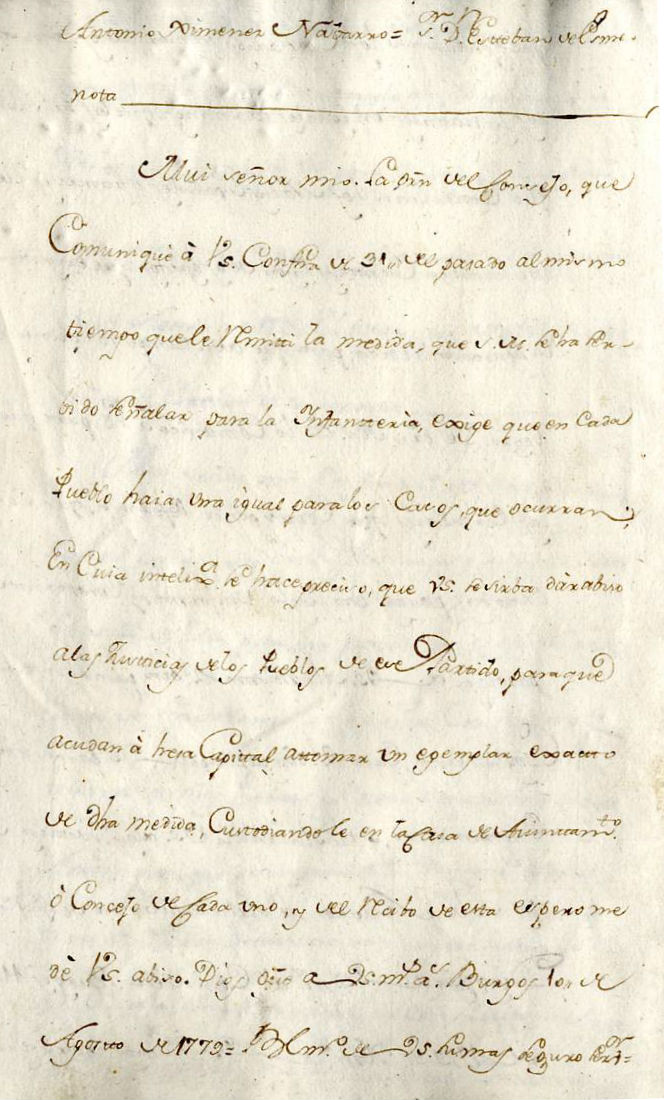 Antonio Ximenez Navarro = Sr. Dn. Esteban del
nota
Mui señor mio. La orn del Consejo, que
Comuniqué à Vs. Confha de 31,, del pasado al mismo
tiempo, que le Remiti la medida, que S. M. se ha ser-
bido señalar para la Infantteria, exige que en Cada
Pueblo haia una igual para los Casos, que ocurran;
En Cuia inteliga. se hace preciso, que Vs. se sirba dàr abiso
a las Justicias de los Pueblos de ese Partido, para que
acudan à hesa Capittal attomar un egemplar exactto
de dha medida, Custodiandole en la Casa de Aiunttamto.
ò Concejo de Cada uno, y del Recibo de esta espero me
dè Vs. abiso. Dios gūe a Vs. ms. as. Burgos 10,, de
Agosto de 1779 = Blmo. de Vs. su mas seguro serr. =